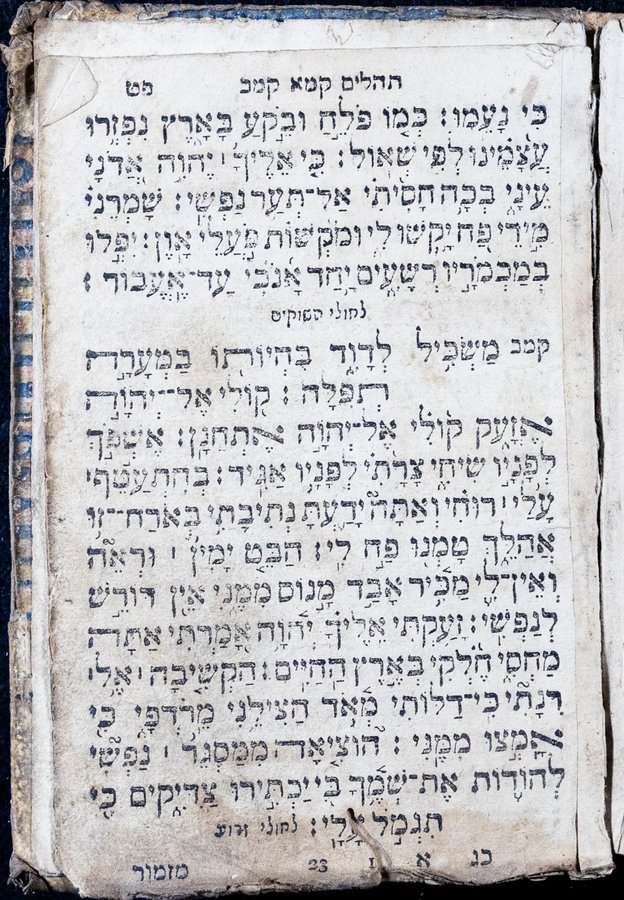 תהלים קמא קמב פט
כִּי נָעֵמוּ׃ כְּמוֹ פֹלֵחַ וּבֹקֵעַ בָּאָרֶץ נִפְזְרוּ
עֲצָמֵינוּ לְפִי שְׁאוֹל׃ כִּי אֵלֶיךָ ׀ יְהוִה אֲדֹנָי
עֵינָי בְּכָה חָסִיתִי אַל־תְּעַר נַפְשִׁי׃ שָׁמְרֵנִי
מִידֵי פַח יָקְשׁוּ לִי וּמֹקְשׁוֹת פֹּעֲלֵי אָוֶן׃ יִפְּלוּ
בְמַכְמֹרָיו רְשָׁעִים יַחַד אָנֹכִי עַד־אֶעֱבוֹר׃
לחולי השוקים
קמב מַשְׂכִּיל לְדָוִד בִּהְיוֹתוֹ בַמְּעָרָה
תְפִלָּה׃ קוֹלִי אֶל־יְהוָה
אֶזְעָק קוֹלִי אֶל־יְהוָה אֶתְחַנָּן׃ אֶשְׁפֹּךְ
לְפָנָיו שִׂיחִי צָרָתִי לְפָנָיו אַגִּיד׃ בְּהִתְעַטֵּף
עָלַי ׀ רוּחִי וְאַתָּה יָדַעְתָּ נְתִיבָתִי בְּאֹרַח־זוּ
אֲהַלֵּךְ טָמְנוּ פַח לִי׃ הַבֵּט יָמִין ׀ וּרְאֵה
וְאֵין־לִי מַכִּיר אָבַד מָנוֹס מִמֶּנִּי אֵין דּוֹרֵשׁ
לְנַפְשִׁי׃ זָעַקְתִּי אֵלֶיךָ יְהוָה אָמַרְתִּי אַתָּה
מַחְסִי חֶלְקִי בְּאֶרֶץ הַחַיִּים׃ הַקְשִׁיבָה ׀ אֶל־
רִנָּתִי כִּי־דַלּוֹתִי מְאֹד הַצִּילֵנִי מֵרֹדְפַי כִּי
אָמְצוּ מִמֶּנִּי׃ הוֹצִיאָה מִמַּסְגֵּר ׀ נַפְשִׁי
לְהוֹדוֹת אֶת־שְׁמֶךָ בִּי יַכְתִּירוּ צַדִּיקִים כִּי
תִגְמֹל עָלָי׃ לחולי זרוע
כג א 1 23 מזמור